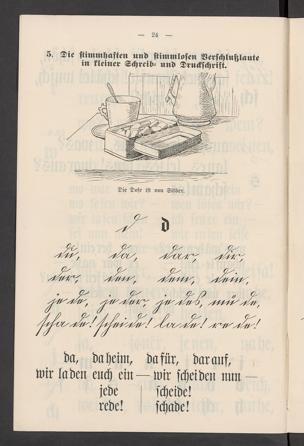 — 24 —
5. Die stimmhaften und stimmlosen Verschlußlaute
in kleiner Schreib- und Druckschrift.
Die Dose ist von Silber.
d d
du, da, dar, dir,
der, den, dem, dein,
je de, je der, je des, mü de,
scha de! schei de! la de! re de!
da, daheim, dafür, darauf,
wir laden euch ein — wir scheiden nun —
jede scheide!
rede! schade!